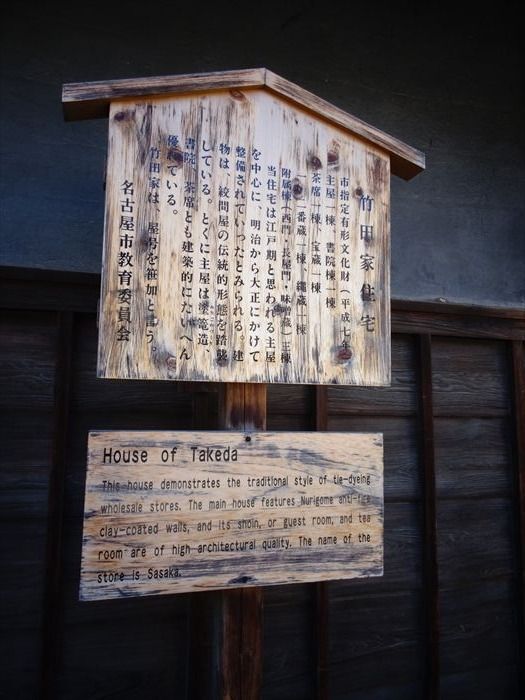 竹田家住宅
市指定有形文化財（平成七年）
主屋一棟、書院棟一棟
茶席一棟、宝蔵一棟
一・二番蔵一棟・縄蔵一棟
附属棟（西門・長屋門・味噌蔵）三棟
当住宅は江戸期と思われる主屋
を中心に、明治から大正にかけて
整備されていったとみられる。建
物は、絞問屋の伝統的形態を踏襲
している。とくに主屋は塗篭造、
書院、茶席とも建築的にたいへん
優れている。
竹田家は、屋号を笹加と言う。
名古屋市教育委員会
House of Takeda
This house demonstrates the traditional style of tie-dyeing
wholesale stores. The main house features Nurigome anti-fire
clay-coated walls, and its shoin, or guest room, and tea
room are of high architectural quality. The name of the
store is Sasaka.